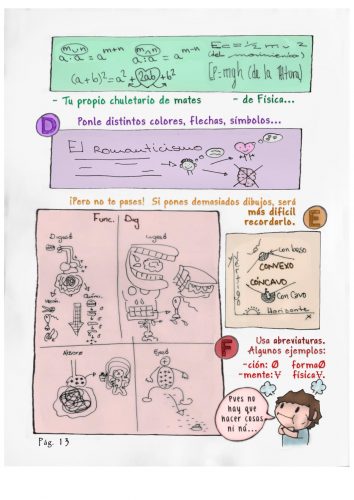 m∧n
a · a = a^m+n
m∧n
a : a = a^m-n
Ec = 1/2 m v²
(del movimiento)
(a+b)² = a² + 2ab + b²
Ep = mgh (de la Altura)
- Tu propio chuletario de mates
- de Física...
D
Ponle distintos colores, flechas, símbolos...
El Romanticismo
¡Pero no te pases! Si pones demasiados dibujos, será
más difícil
recordarlo.
E
Func. Dig
con beso
CONVEXO
CÓNCAVO
con Cavo
Horizonte
F
Usa abreviaturas.
Algunos ejemplos:
-ción: Ø formaØ
-mente: Ɐ físicaⱯ.
Pues no
hay que
hacer cosas
ni ná...
Pág. 13